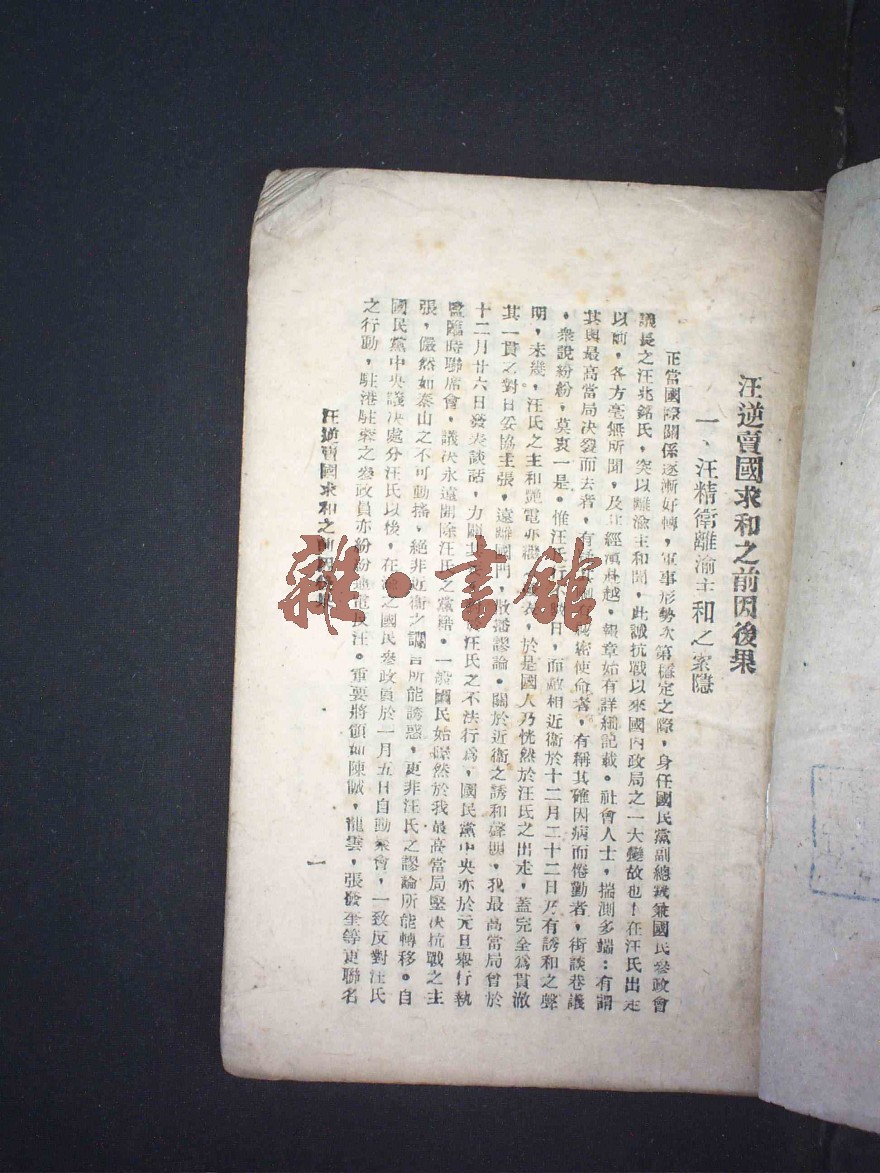 汪逆賣國求和之前因後果
一、汪精衛離渝主和之索隱
正當國際關係逐漸好轉，軍事形勢次第穩定之際，身任國民黨副總裁兼國民參政會
議長之汪兆銘氏，突以離渝主和聞，此誠抗戰以來國內政局之一大變故也！在汪氏出走
以前，各方毫無所聞，及其經滇赴越，報章始有詳細記載。社會人士，揣測多端：有謂
其與最高當局決裂而去者，有 秘密使命者，有稱其確因病而倦勤者，街談巷議
。衆說紛紛，莫衷一是。惟汪氏 日，而敵相近衞於十二月二十二日乃有誘和之聲
明，未幾，汪氏之主和艷電亦 ，於是國人乃恍然於汪氏之出走，蓋完全爲貫澈
其一貫之對日妥協主張，遠離國門， 播謬論。關於近衞之誘和聲明，我最高當局曾於
十二月廿六日發表談話，力闢 汪氏之不法行爲，國民黨中央亦於元旦舉行執
監臨時聯席會，議決永遠開除汪氏之黨籍。一般國民始 然於我最高當局堅決抗戰之主
張，儼然如泰山之不可動搖，絕非近衞之 言所能誘惑，更非汪氏之謬論所能轉移。自
國民黨中央議決處分汪氏以後，在 之國民參政員於一月五日自動集會，一致反對汪氏
之行動，駐港駐 之參政員亦紛紛通電反汪。重要將領如陳誠，龍雲，張發奎等更聯名
汪逆賣國求和之前因後果
一
雜·書館